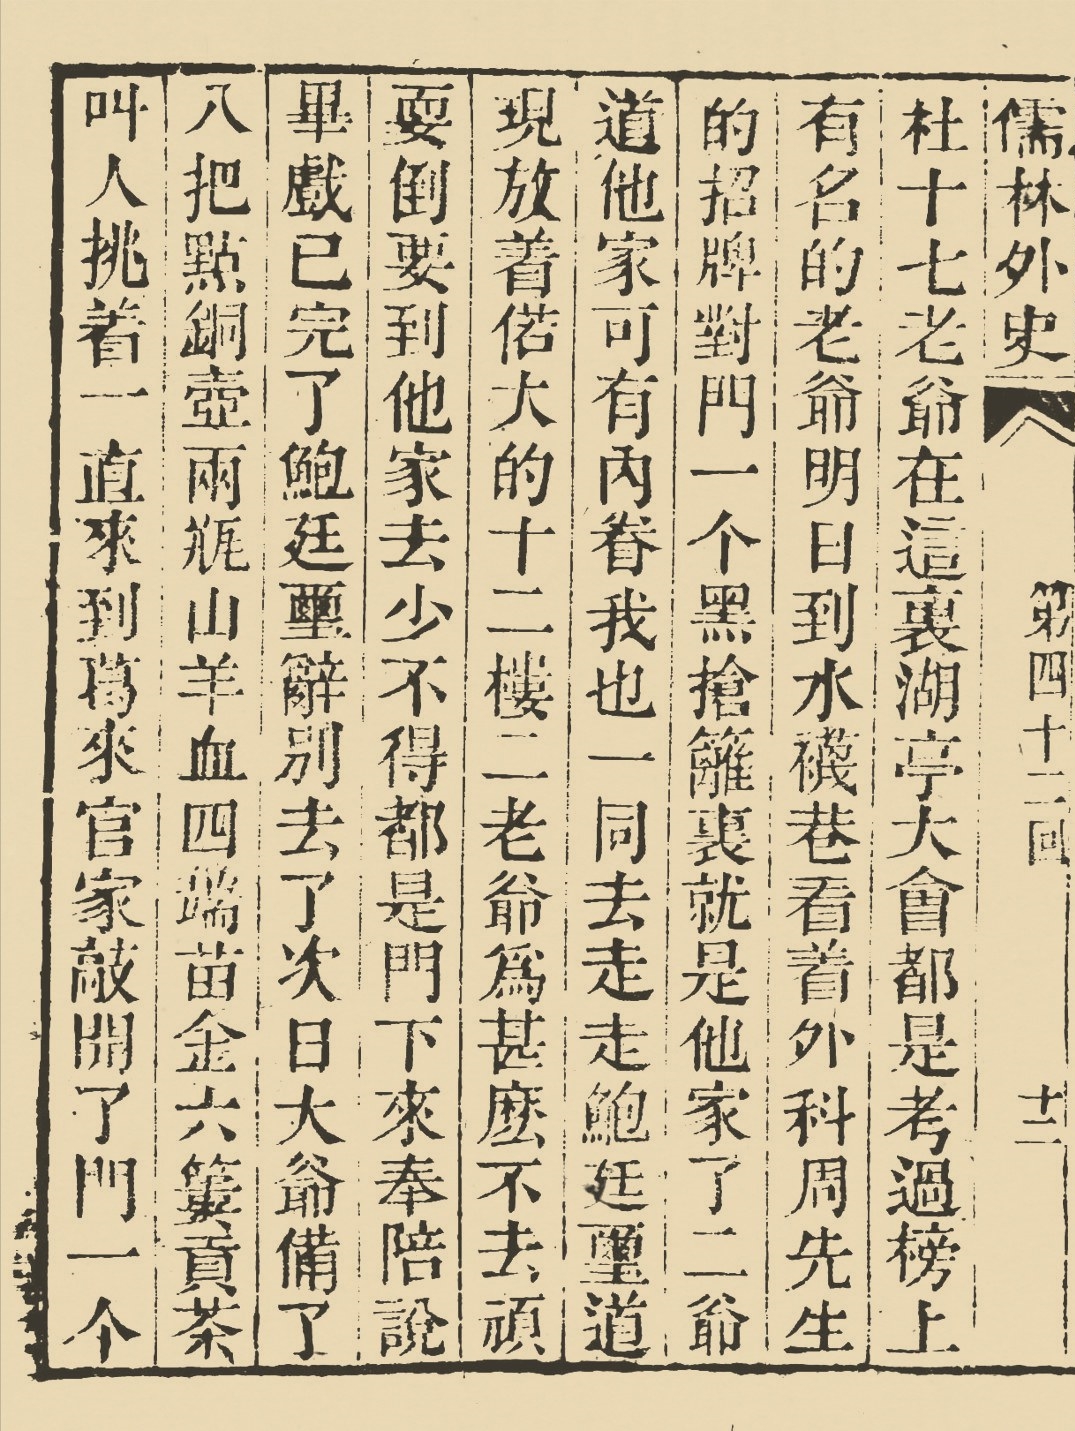 儒林外史 第四十二回 十二
杜十七老爺在這裏湖亭大會都是考過榜上
有名的老爺明日到水襪巷看着外科周先生
的招牌對門一个黑搶籬裏就是他家了二爺
道他家可有內眷我也一同去走走鮑廷璽道
現放着偌大的十二樓二老爺爲甚麽不去頑
耍倒要到他家去少不得都是門下來奉陪說
畢戲已完了鮑廷璽辭別去了次日大爺備了
八把點銅壺兩瓶山羊血四端苗金六簍貢茶
叫人挑着一直來到葛來官家敲開了門一个